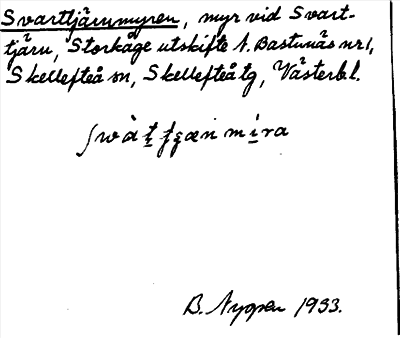 Svarttjärnmyren, myr vid Svart-
tjärn, Storkåge utskifte N. Bastunäs nr 1,
Skellefteå sn, Skellefteå tg, Västerb. l.
B. Nygren 1933.